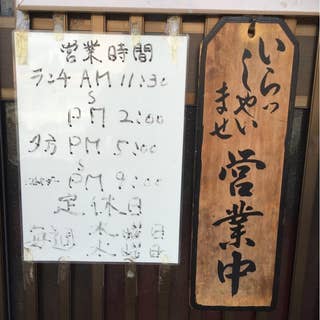 営業時間
ランチ AM 11:30
S
PM 2:00
夕方 PM 5:00
S
PM 9:00
定休日
毎週 水曜日
木曜日
いらっ
しゃい
ませ
営業中